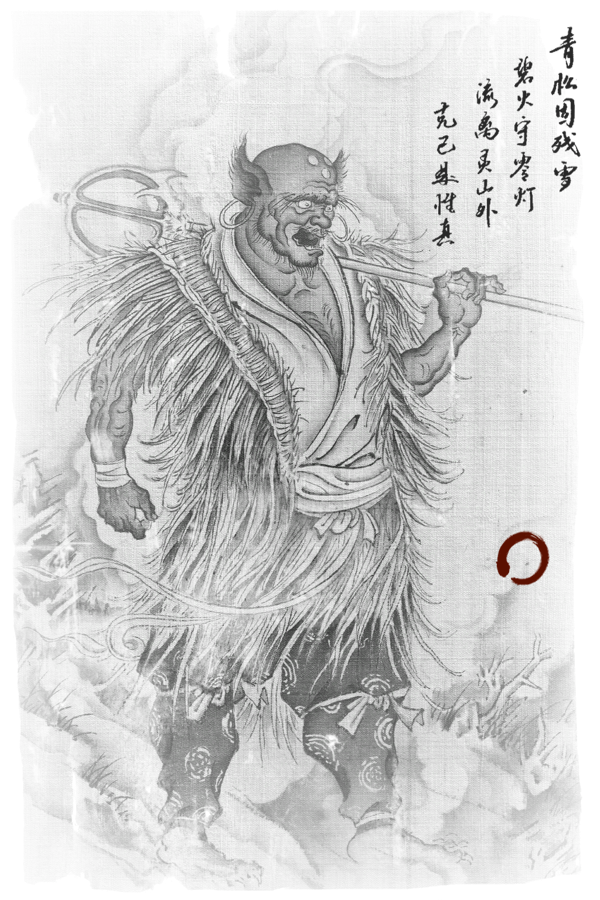 青松残雪
碧火守零灯
流离灵山外
克己惟真